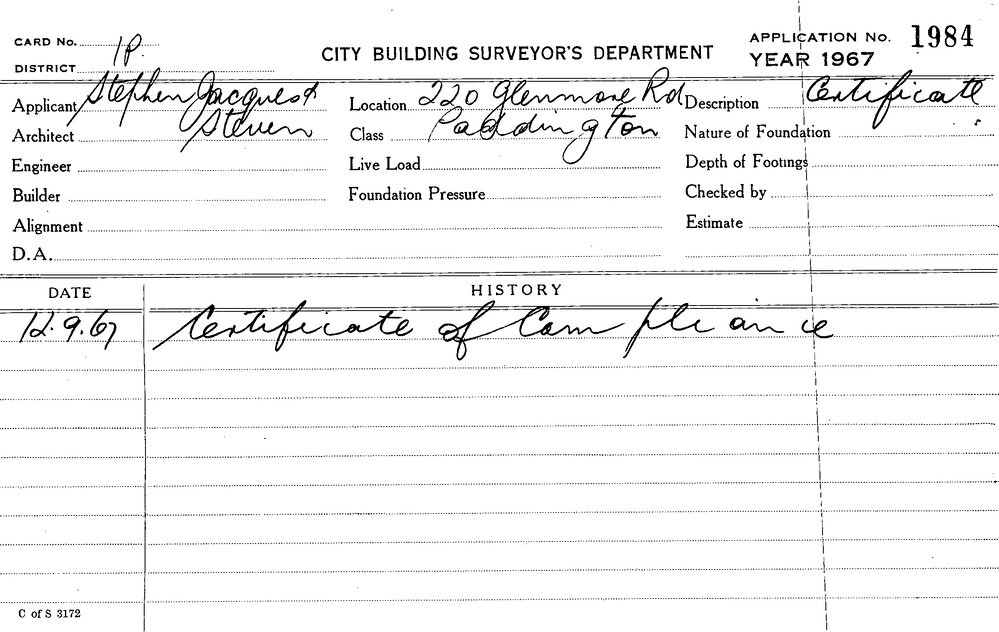 CARD No. 1P.
CITY BUILDING SURVEYOR'S DEPARTMENT
APPLICATION No. 1984
DISTRICT
YEAR 1967
Applicant Stephen Jacques & Location 220 Glenmore Rd Description Certificate
Architect Steven Class Paddington Nature of Foundation
Engineer Live Load Depth of Footings
Builder Foundation Pressure Checked by
Alignment Estimate
D.A.
DATE HISTORY
12.9.67 Certificate of Compliance
C of S 3172